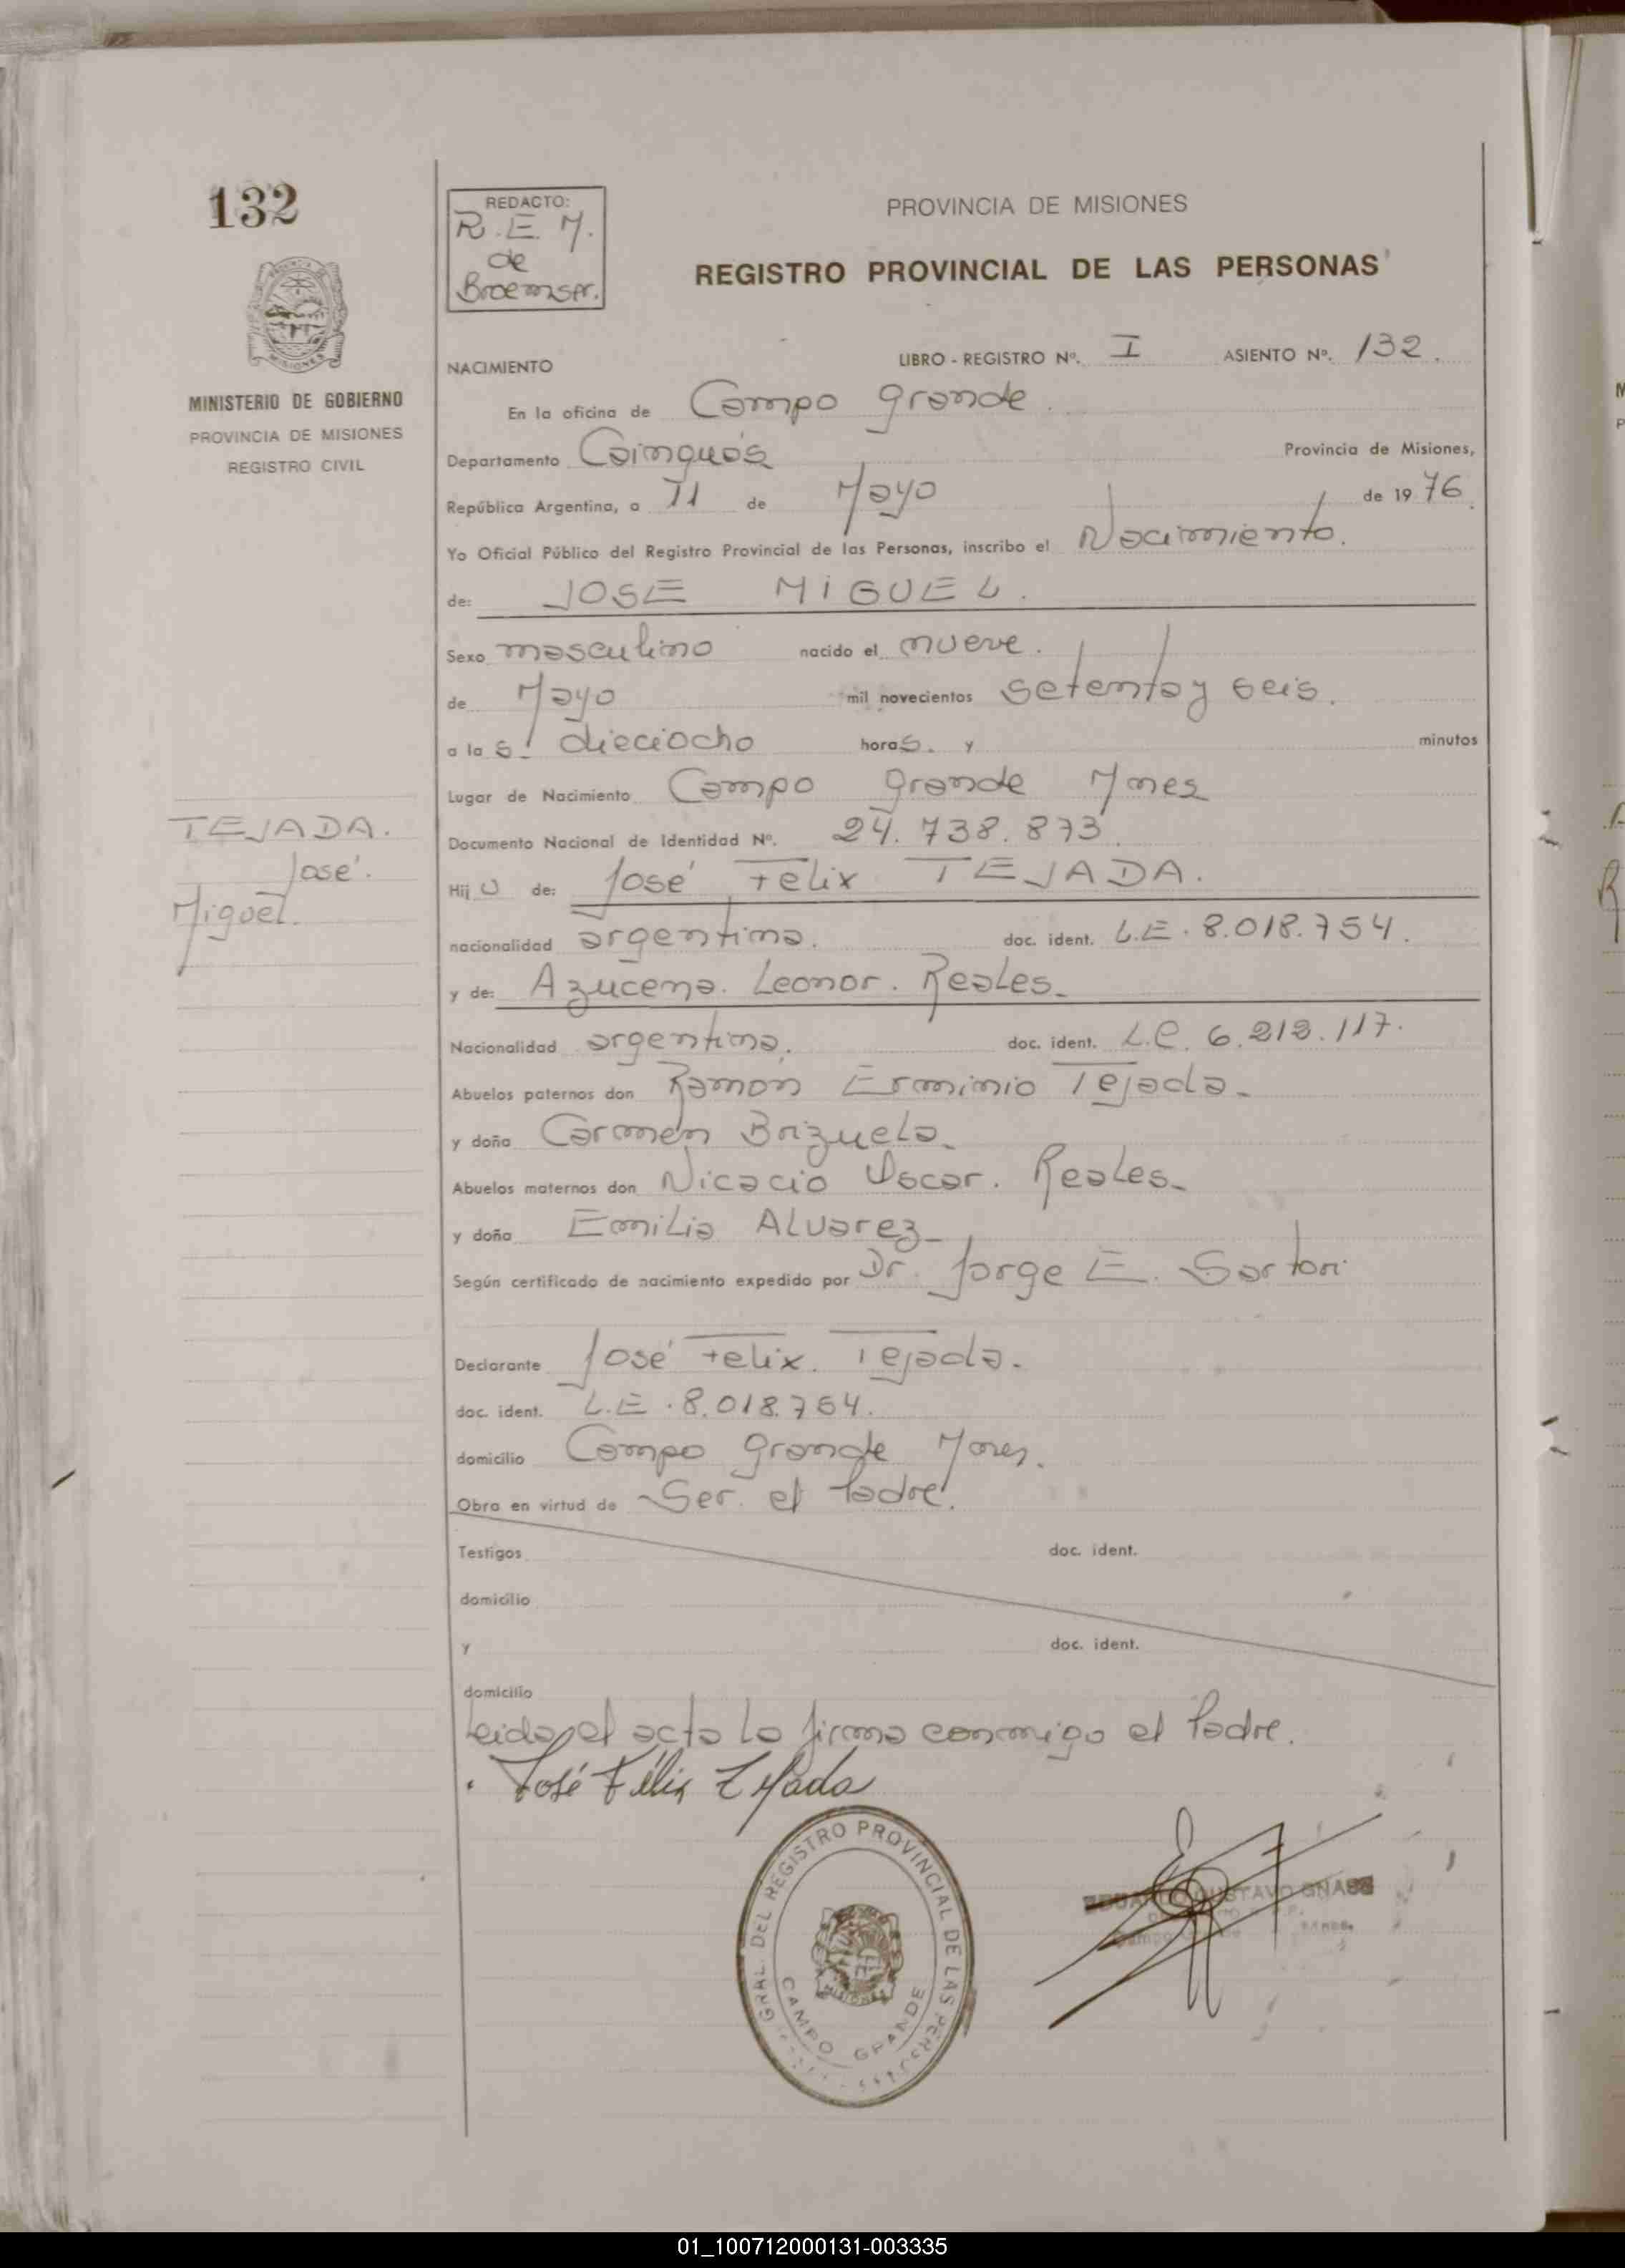 132
REDACTO:
R.E.M.
de
Broemser.
PROVINCIA DE MISIONES
REGISTRO PROVINCIAL DE LAS PERSONAS
MISIONES
MINISTERIO DE GOBIERNO
PROVINCIA DE MISIONES
REGISTRO CIVIL
NACIMIENTO
LIBRO - REGISTRO Nº. I ASIENTO Nº. 132.
En la oficina de Campo grande.
Departamento Cainguás Provincia de Misiones,
República Argentina, a 11 de Mayo de 1976
Yo Oficial Público del Registro Provincial de las Personas, inscribo el Nacimiento.
de: JOSE MIGUEL.
Sexo masculino nacido el nueve.
de Mayo mil novecientos setenta y seis.
a las dieciocho horas. y minutos
Lugar de Nacimiento Campo grande Mnes
Documento Nacional de Identidad Nº. 24.738.873
TEJADA.
José.
Miguel.
Hijo de: José Felix TEJADA.
nacionalidad argentina. doc. ident. L.E. 8.018.754.
y de: Azucena. Leonor. Reales.
Nacionalidad argentina. doc. ident. L.C. 6.212.117.
Abuelos paternos don Ramón Erminio Tejada.
y doña Carmen Brizuela.
Abuelos maternos don Nicacio Oscar. Reales.
y doña Emilia Alvarez
Según certificado de nacimiento expedido por Dr. Jorge E. Sartori
Declarante José Felix. Tejada.
doc. ident. L.E. 8.018.754.
domicilio Campo grande Mnes.
Obra en virtud de Ser. el Padre.
Testigos doc. ident.
domicilio
y doc. ident.
domicilio
Leida el acta la firma conmigo el Padre.
José Félix Tejada
GRAL. DEL REGISTRO PROVINCIAL DE LAS PERSONAS
CAMPO GRANDE
MISIONES
GUSTAVO GNASS
01_100712000131-003335